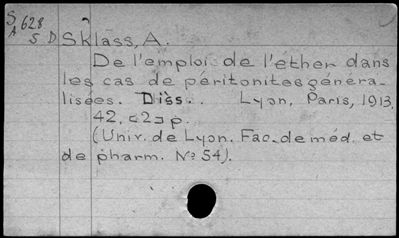 S 628
A S D Sklass, A.
De l'emploi de l'éther dans
les cas de péritonites généra-
lisées. Diss.. Lyon, Paris, 1913,
42, [2] p.
(Univ. de Lyon. Fac. de méd. et
de pharm. No 54).